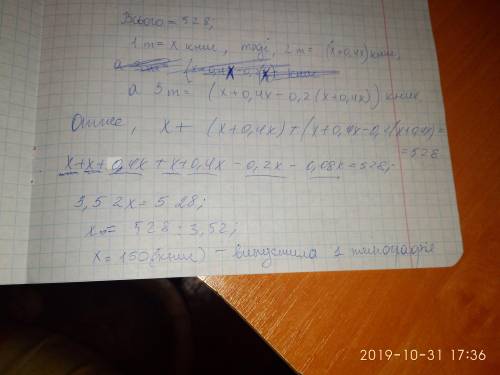 Всього = 528;
1 т = х книг, тоді, 2 т = (х+0,4х) книг,
а 3 т = (х+0,4х - 0,2(х+0,4х)) книг
Отже, х + (х+0,4х) + (х+0,4х-0,2(х+0,4х)=
=528
х+х+0,4х + х+0,4х - 0,2х - 0,08х = 528;
3,52х = 528;
х = 528 : 3,52;
х = 150 (книг) - випустила 1 типографія
2019-10-31 17:36